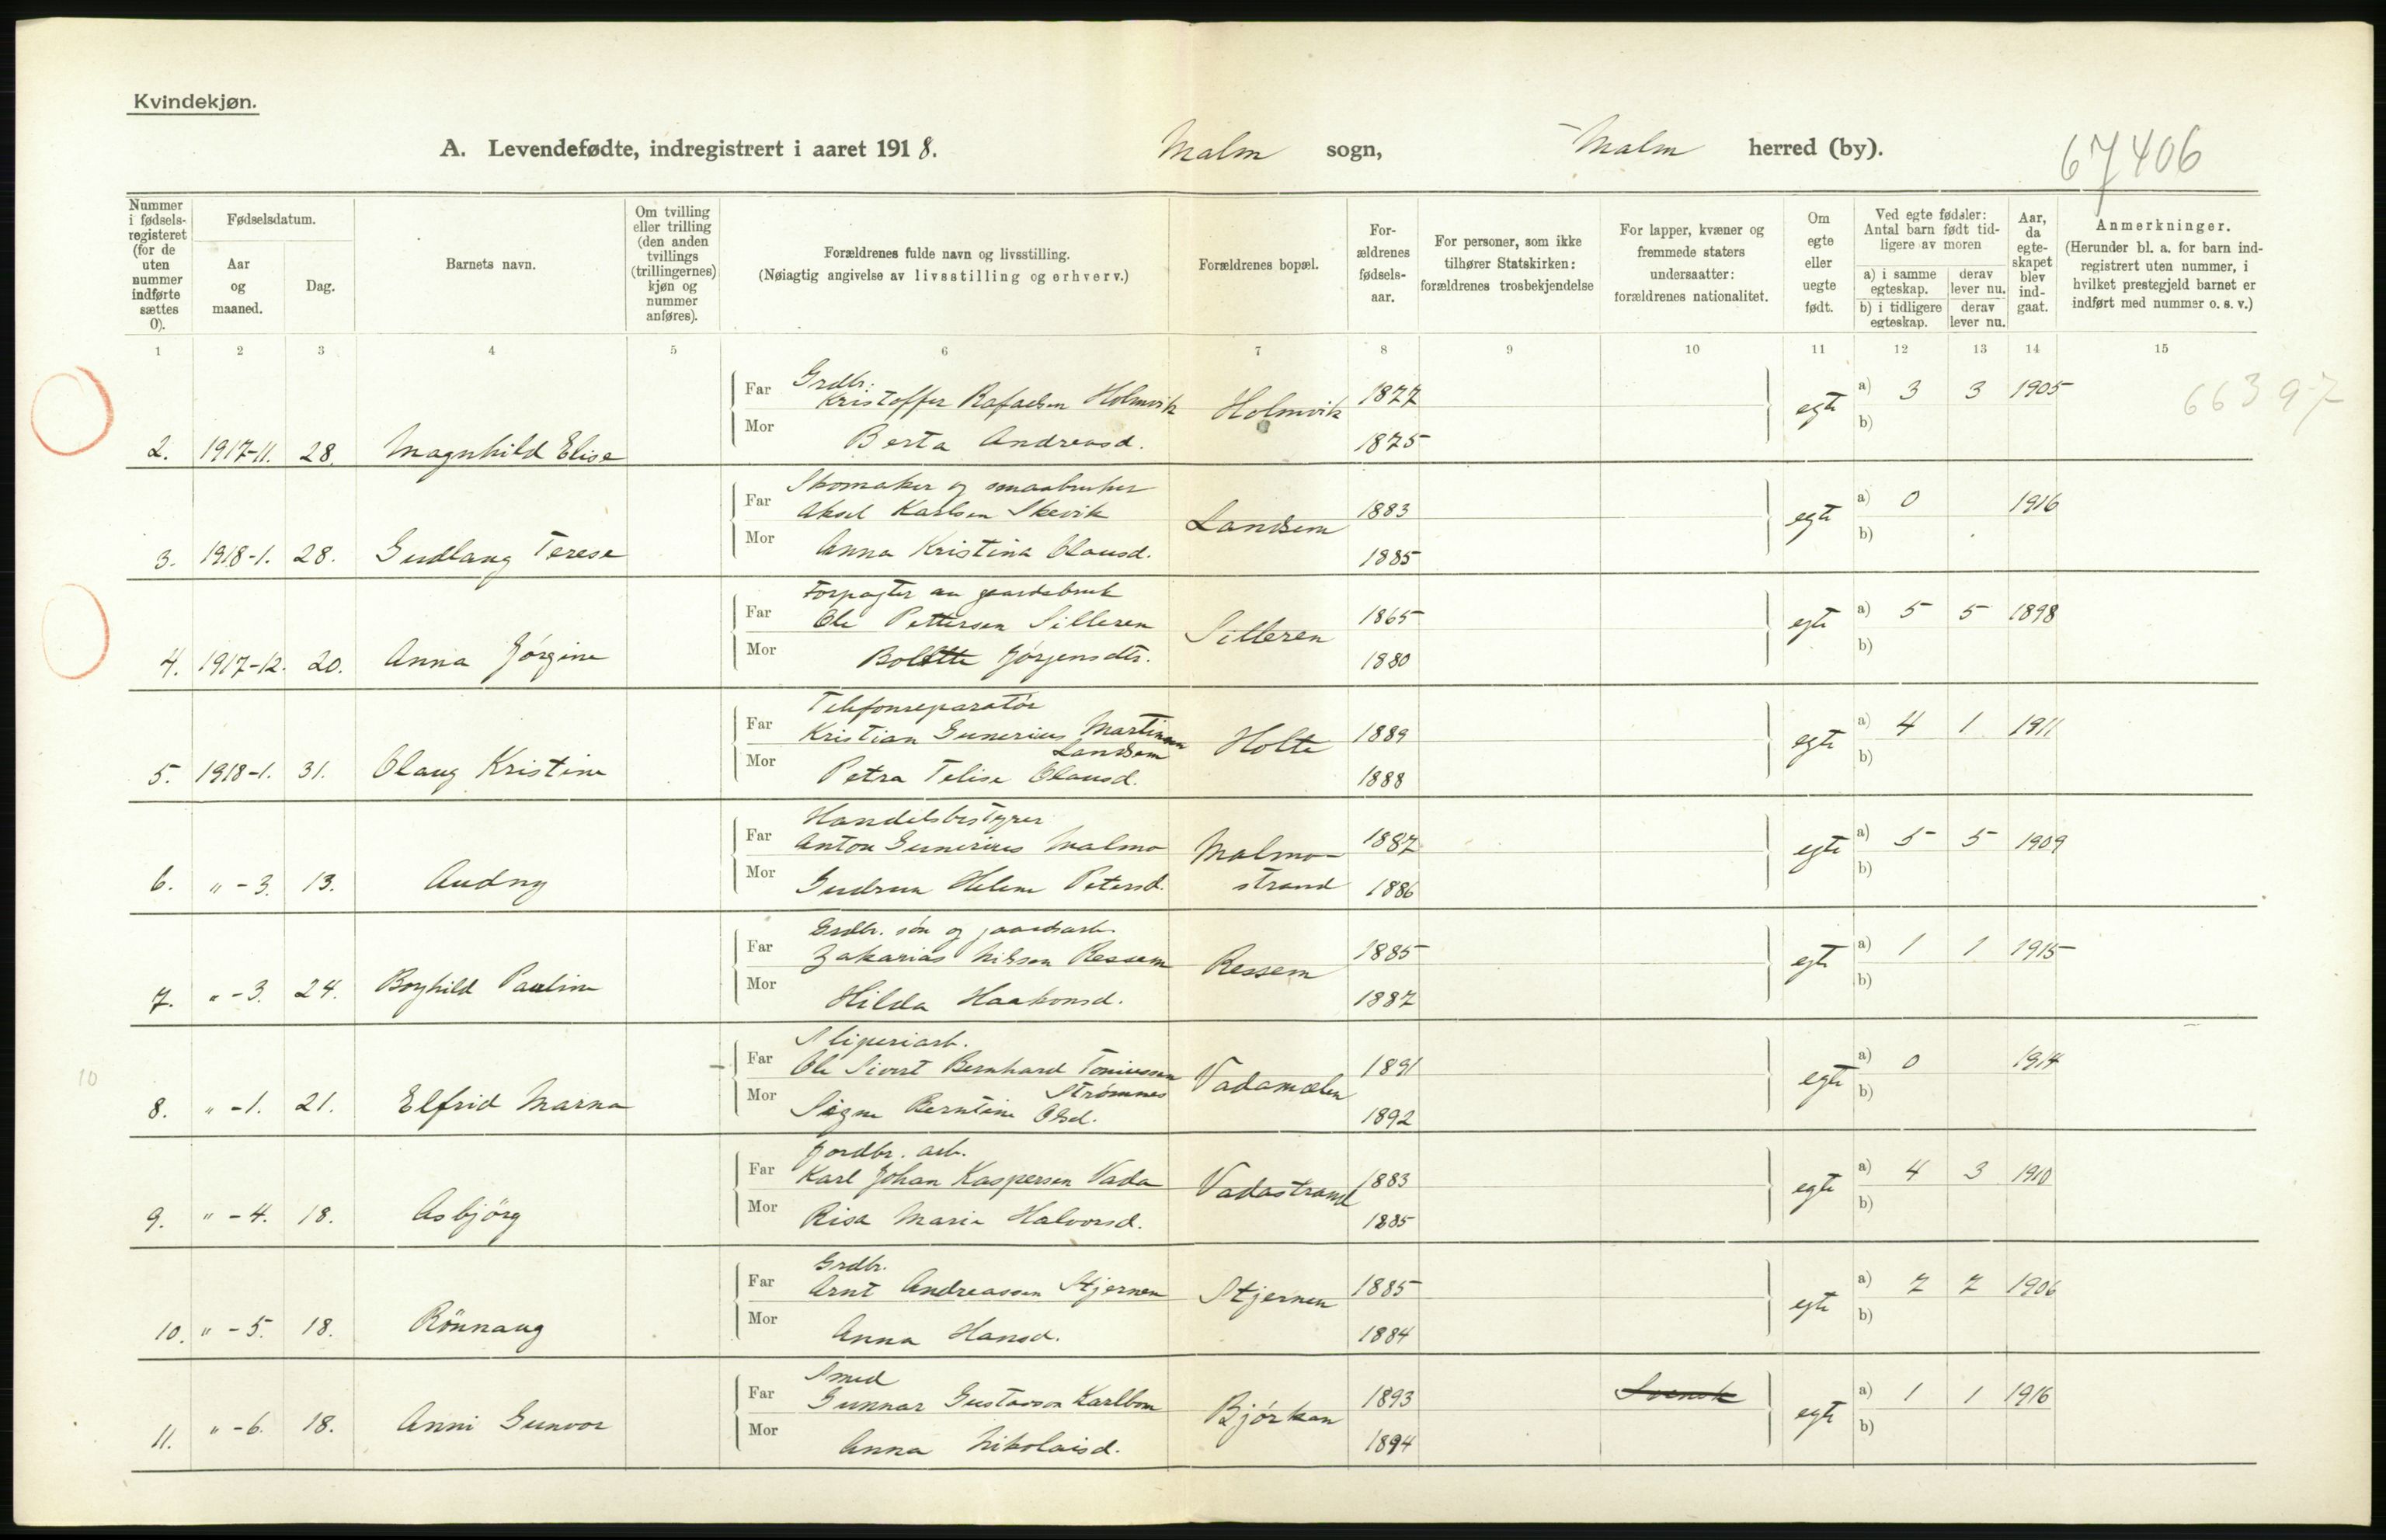 Kvindekjøn.
A. Levendefødte, indregistrert i aaret 1918. Malm sogn, Malm herred (by). 67406
Nummer i fødsels-registeret (for de uten nummer indførte sættes 0).
Fødselsdatum.
Aar og maaned.
Dag.
Barnets navn.
Om tvilling eller trilling (den anden tvillings (trillingernes) kjøn og nummer anføres).
Forældrenes fulde navn og livsstilling.
(Nøiagtig angivelse av livsstilling og erhverv.)
Forældrenes bopæl.
For-ældrenes fødsels-aar.
For personer, som ikke tilhører Statskirken: forældrenes trosbekjendelse
For lapper, kvæner og fremmede staters undersaatter: forældrenes nationalitet.
Om egte eller uegte født.
Ved egte fødsler: Antal barn født tid-ligere av moren
a) i samme egteskap. derav lever nu.
b) i tidligere egteskap. derav lever nu.
Aar, da egte-skapet blev ind-gaat.
Anmerkninger.
(Herunder bl. a. for barn ind-registrert uten nummer, i hvilket prestegjeld barnet er indført med nummer o. s. v.)
1 2 3 4 5 6 7 8 9 10 11 12 13 14 15
Grdbr.
Far Kristoffer Rafaelsen Holmvik Holmvik 1877 egte a) 3 3 1905 66397
2. 1917-11. 28. Magnhild Elise Mor Berta Andreasd. 1875 b)
Skomaker og smaabruker
Far Aksel Karlsen Skevik Landsem 1883 egte a) 0 1916
3. 1918-1. 28. Gudlaug Terese Mor Anna Kristina Olausd. 1885 b)
Forpagter av gaardsbruk
Far Ole Pettersen Silleren Silleren 1865 egte a) 5 5 1898
4. 1917-12. 20. Anna Jørgine Mor Bolette Jørgensdtr. 1880 b)
Telefonreparatör
Far Kristian Gunerius Martinsen Landsem Holte 1889 egte a) 4 1 1911
5. 1918-1. 31. Olaug Kristine Mor Petra Telise Olausd. 1888 b)
Handelsbestyrer
Far Anton Gunerius Malmo Malmo- 1887 egte a) 5 5 1909
6. " - 3. 13. Audny Mor Gudrun Helene Petersd. strand 1886 b)
Grdbr. søn og gaardsarb.
Far Zakarias Nilsen Ressem Ressem 1885 egte a) 1 1 1915
7. " - 3. 24. Borghild Pauline Mor Hilda Haakonsd. 1887 b)
Sliperiarb.
Far Ole Sivert Bernhard Toniussen Strømnes Vadamælen 1891 egte a) 0 1914
10
8. " - 1. 21. Elfrid Marna Mor Signe Berntine Olsd. 1892 b)
Jordbr. arb.
Far Karl Johan Kaspersen Vada Vadastrand 1883 egte a) 4 3 1910
9. " - 4. 18. Asbjörg Mor Risa Marie Halvorsd. 1885 b)
Grdbr.
Far Arnt Andreassen Stjernen Stjernen 1885 egte a) 7 7 1906
10. " - 5. 18. Rönnaug Mor Anna Hansd. 1884 b)
Smed
Far Gunnar Gustavson Karlbom Bjørkan 1893 Svensk egte a) 1 1 1916
11. " - 6. 18. Anni Gunvor Mor Anna Nikolaisd. 1894 b)